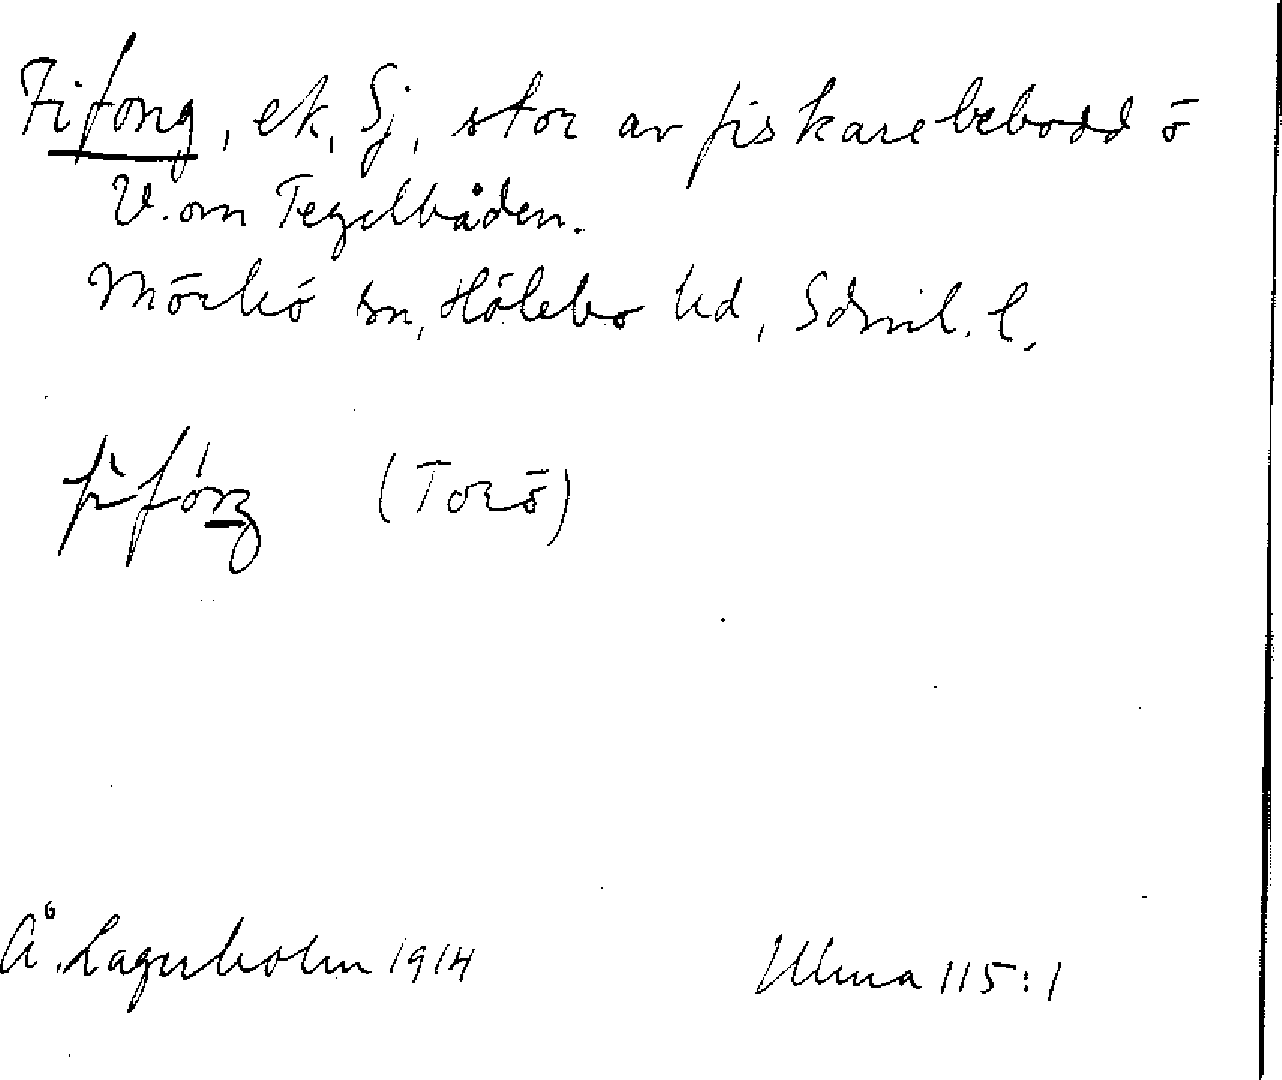 Fifong, ek, Sj, stor av fiskare bebodd ö
V. om Tegelbåden.
Mörkö sn, Hölebo hd, Sdml. l.
(Torö)
Å. Lagerholm 1914
Ulma 115:1